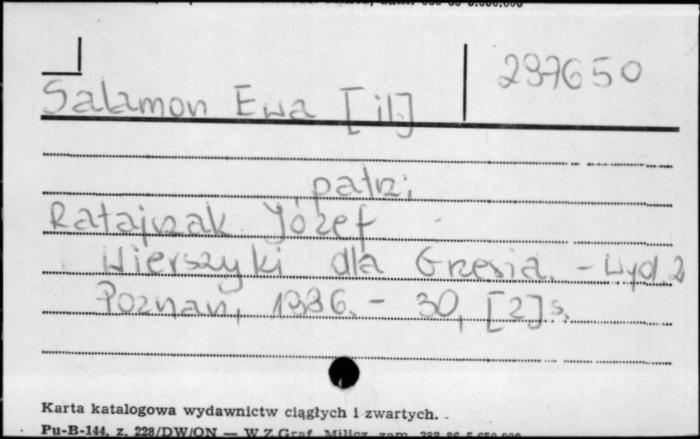 297650
Salamon Ewa [il.]
patrz:
Ratajczak Józef
Wierszyki dla Grzesia. - wyd. 2
Poznań, 1986. - 30, [2] s.
Karta katalogowa wydawnictw ciągłych i zwartych.
Pu-B-144, z. 228/DW/ON — W.Z.Graf. Milicz, zam.